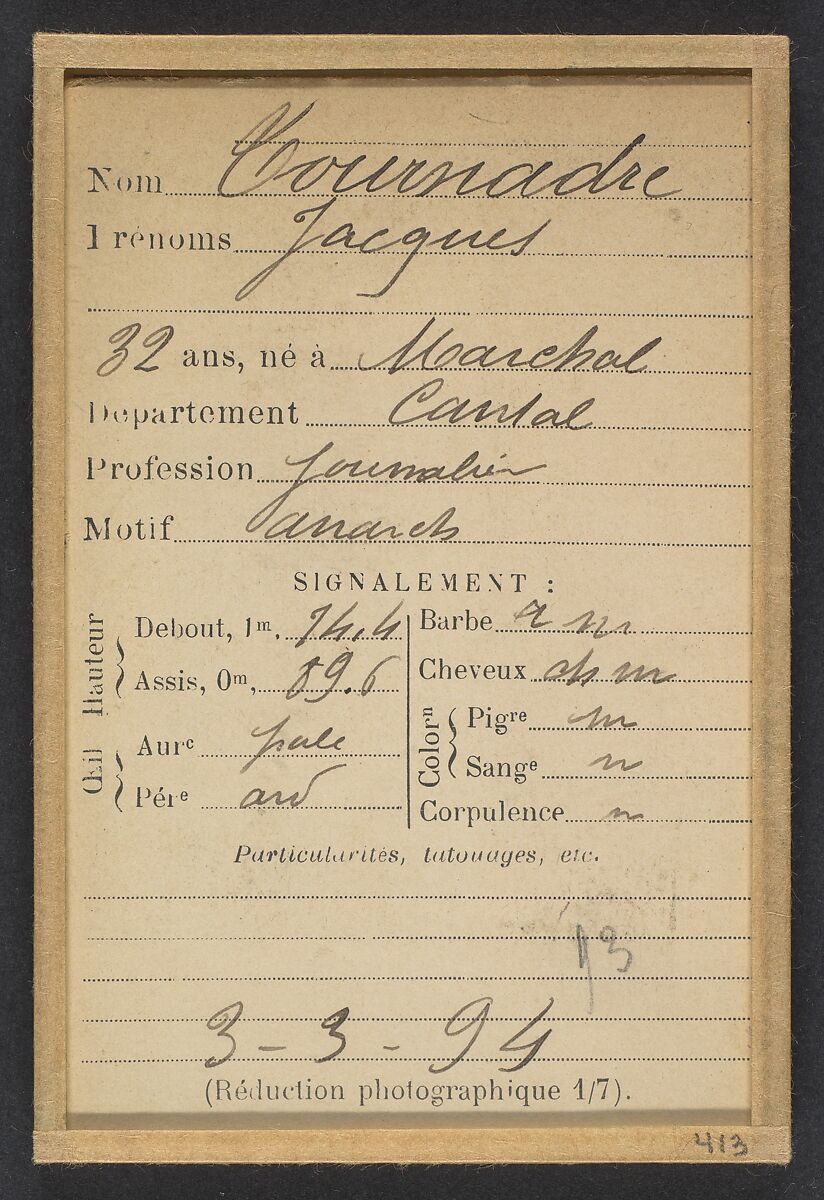 Nom Tournadre
Prénoms Jacques
32 ans, né à Marchal
Département Cantal
Profession Journalier
Motif anarch
SIGNALEMENT :
Hauteur
Debout, 1m, 74.4
Assis, 0m, 89.6
Œil
Aurᵉ pale
Pérᵉ ard
Barbe r m
Cheveux ch m
Colorⁿ
Pigʳᵉ m
Sangᵉ n
Corpulence m
Particularités, tatouages, etc.
13
3-3-94
(Réduction photographique 1/7).
413